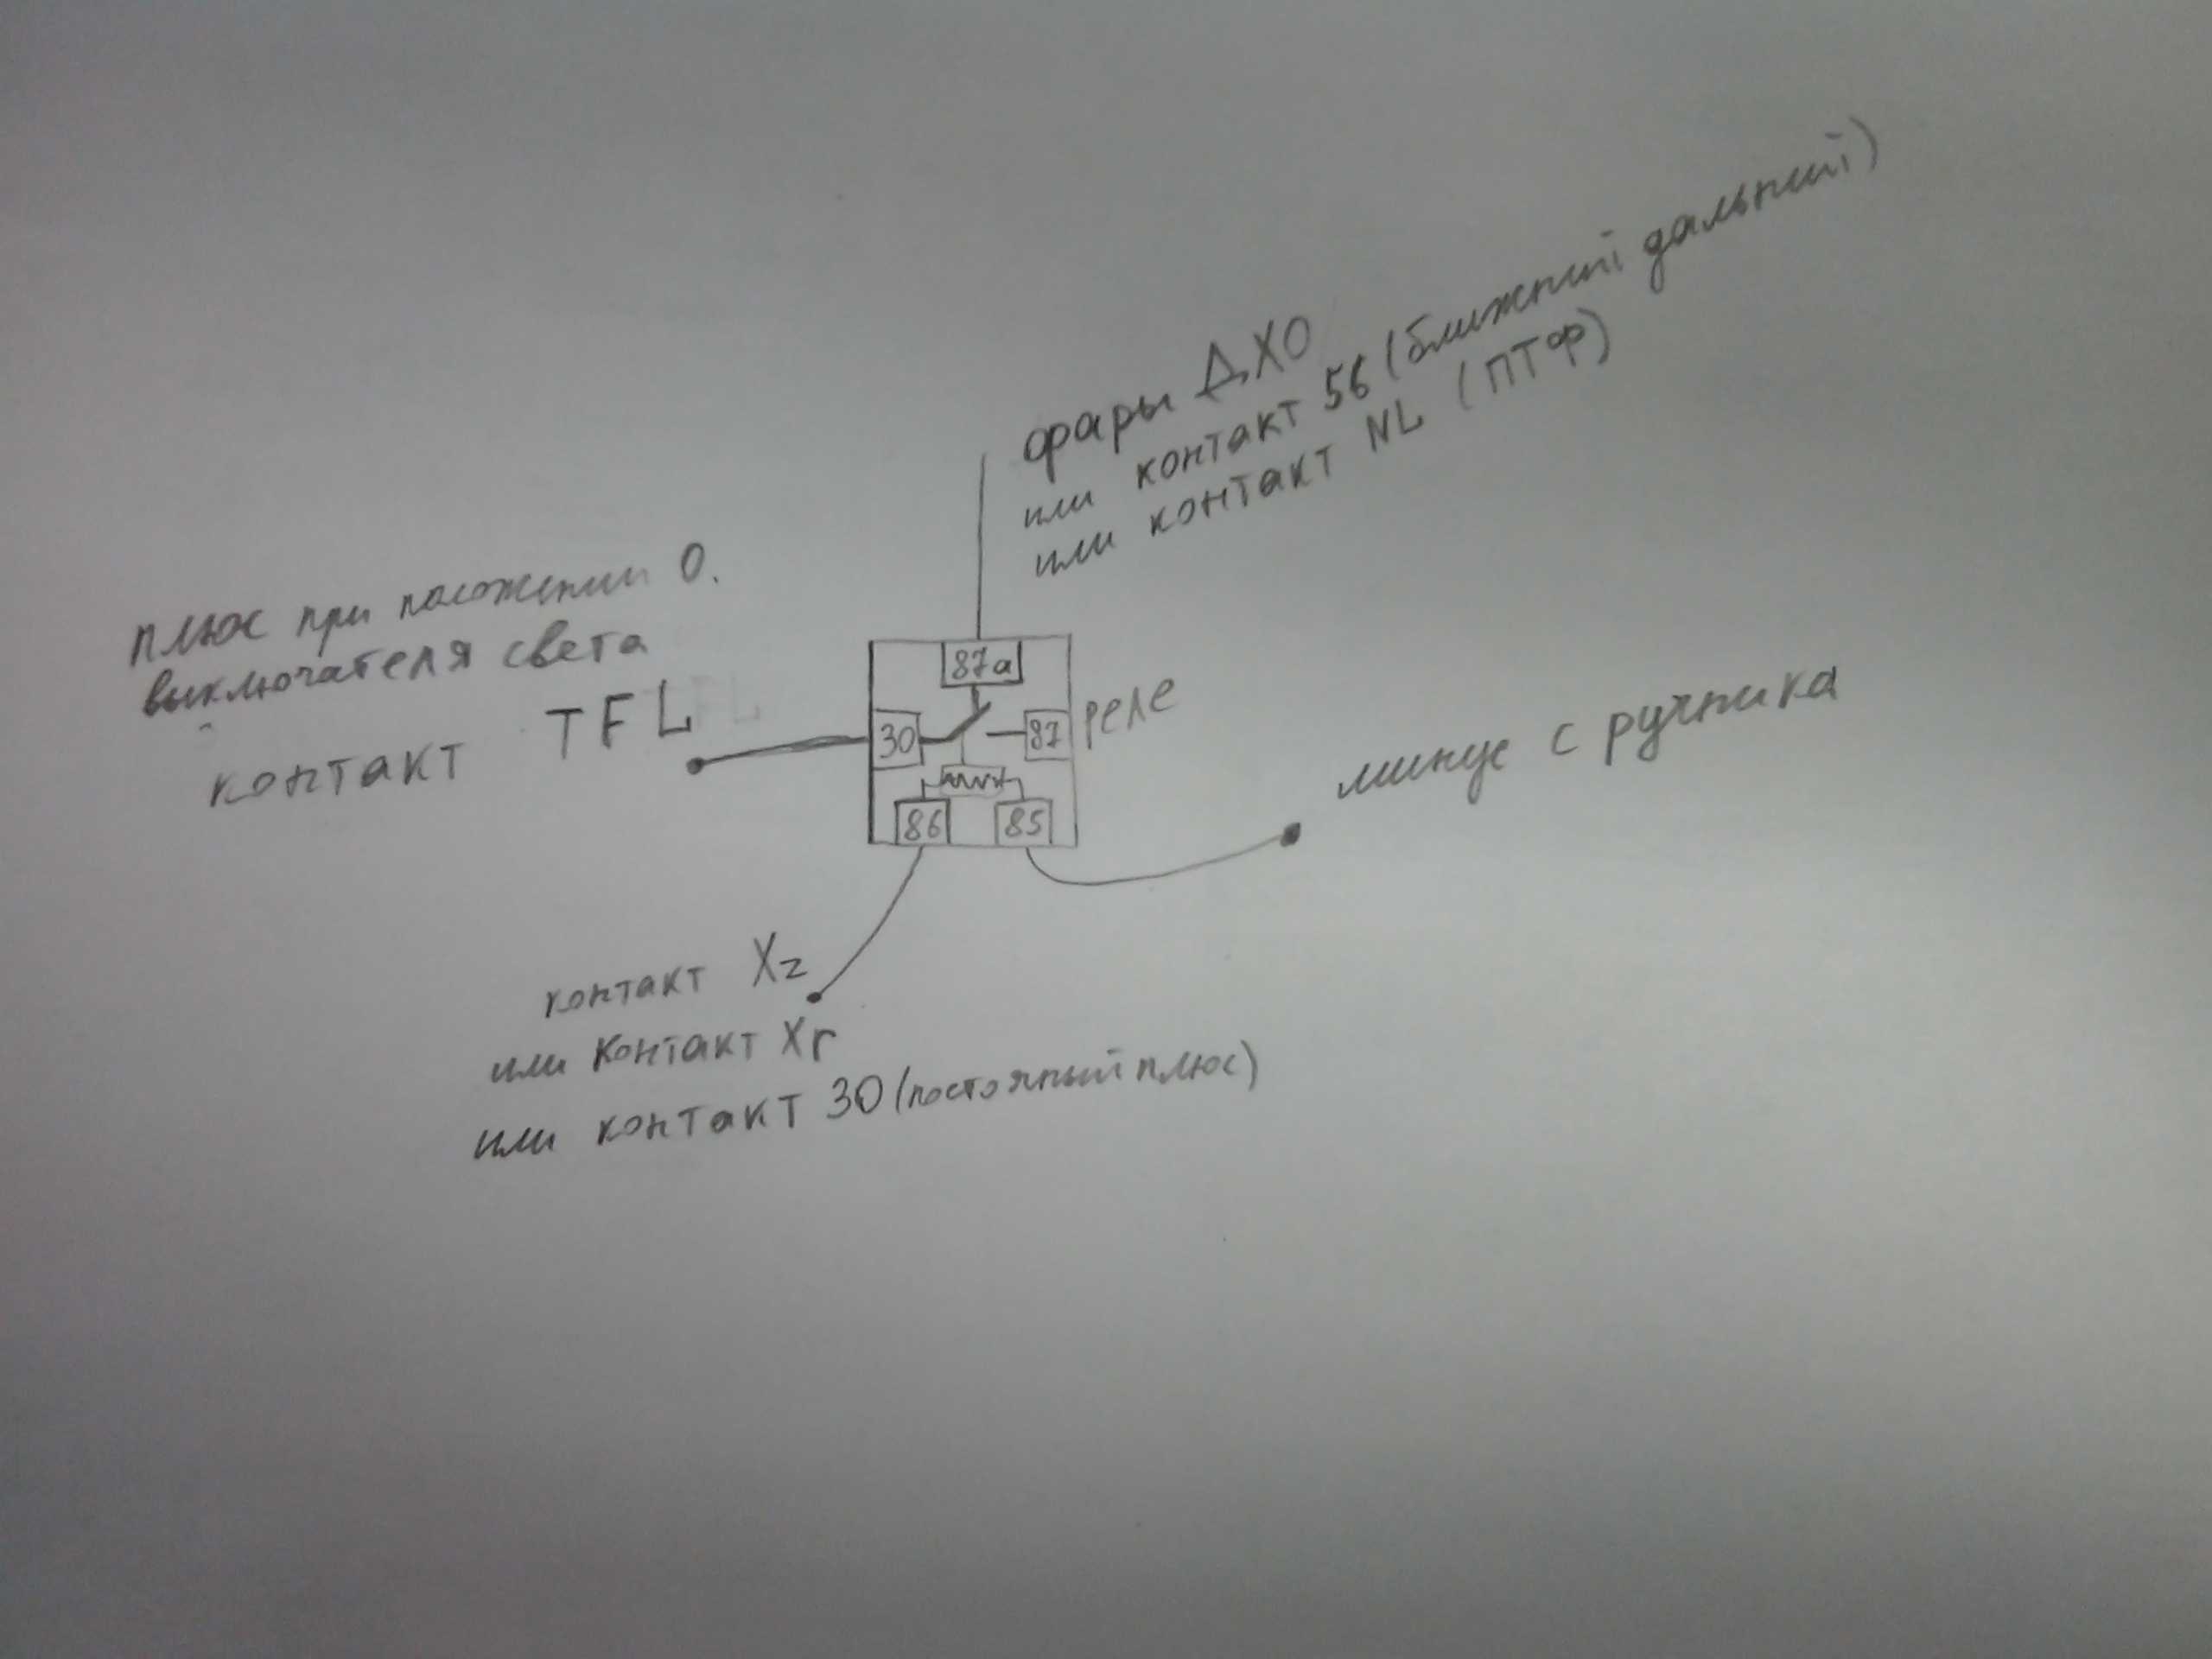 фары ДХО
или контакт 56 (ближний дальний)
или контакт NL (ПТФ)
плюс при положении 0.
выключателя света
контакт TFL
87a
30
87
реле
86
85
минус с ручника
контакт Xz
или контакт Xr
или контакт 30 (постоянный плюс)